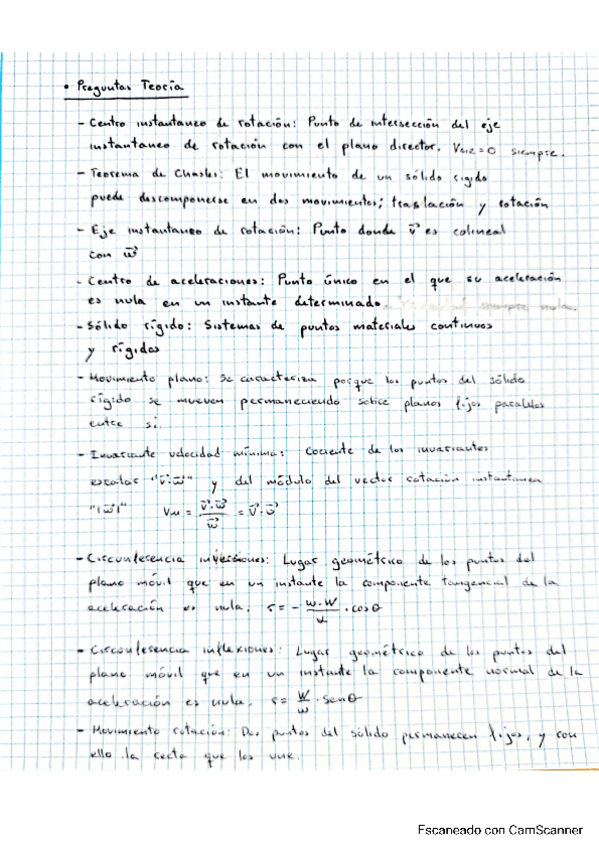 • Preguntas Teoría
- Centro instantaneo de rotación: Punto de intersección del eje
instantaneo de rotación con el plano director. VCIR=0 siempre.
- Teorema de Chasles: El movimiento de un sólido rigido
puede descomponerse en dos movimientos; traslación y rotación
- Eje instantaneo de rotación: Punto donde v⃗ es colineal
con ω⃗
- Centro de aceleraciones: Punto único en el que su aceleración
es nula en un instante determinado. siempre nula.
- Sólido rígido: Sistemas de puntos materiales continuos
y rígidos
- Movimiento plano: Se caracteriza porque los puntos del sólido
rígido se mueven permaneciendo sobre planos fijos paralelos
entre sí.
- Invariante velocidad mínima: Cociente de los invariantes
escalar "v⃗·ω⃗" y del módulo del vector rotación instantanea
"|ω⃗|" Vm = v⃗·ω⃗ / ω⃗ = v⃗·ω⃗
- Circunferencia inflexiones: Lugar geométrico de los puntos del
plano móvil que en un instante la componente tangencial de la
aceleración es nula. r = - ω·W / α · cosθ
- Circunferencia inflexiones: Lugar geométrico de los puntos del
plano móvil que en un instante la componente normal de la
aceleración es nula. r = W / ω · senθ
- Movimiento rotación: Dos puntos del sólido permanecen fijos, y con
ello la recta que los une.
Escaneado con CamScanner